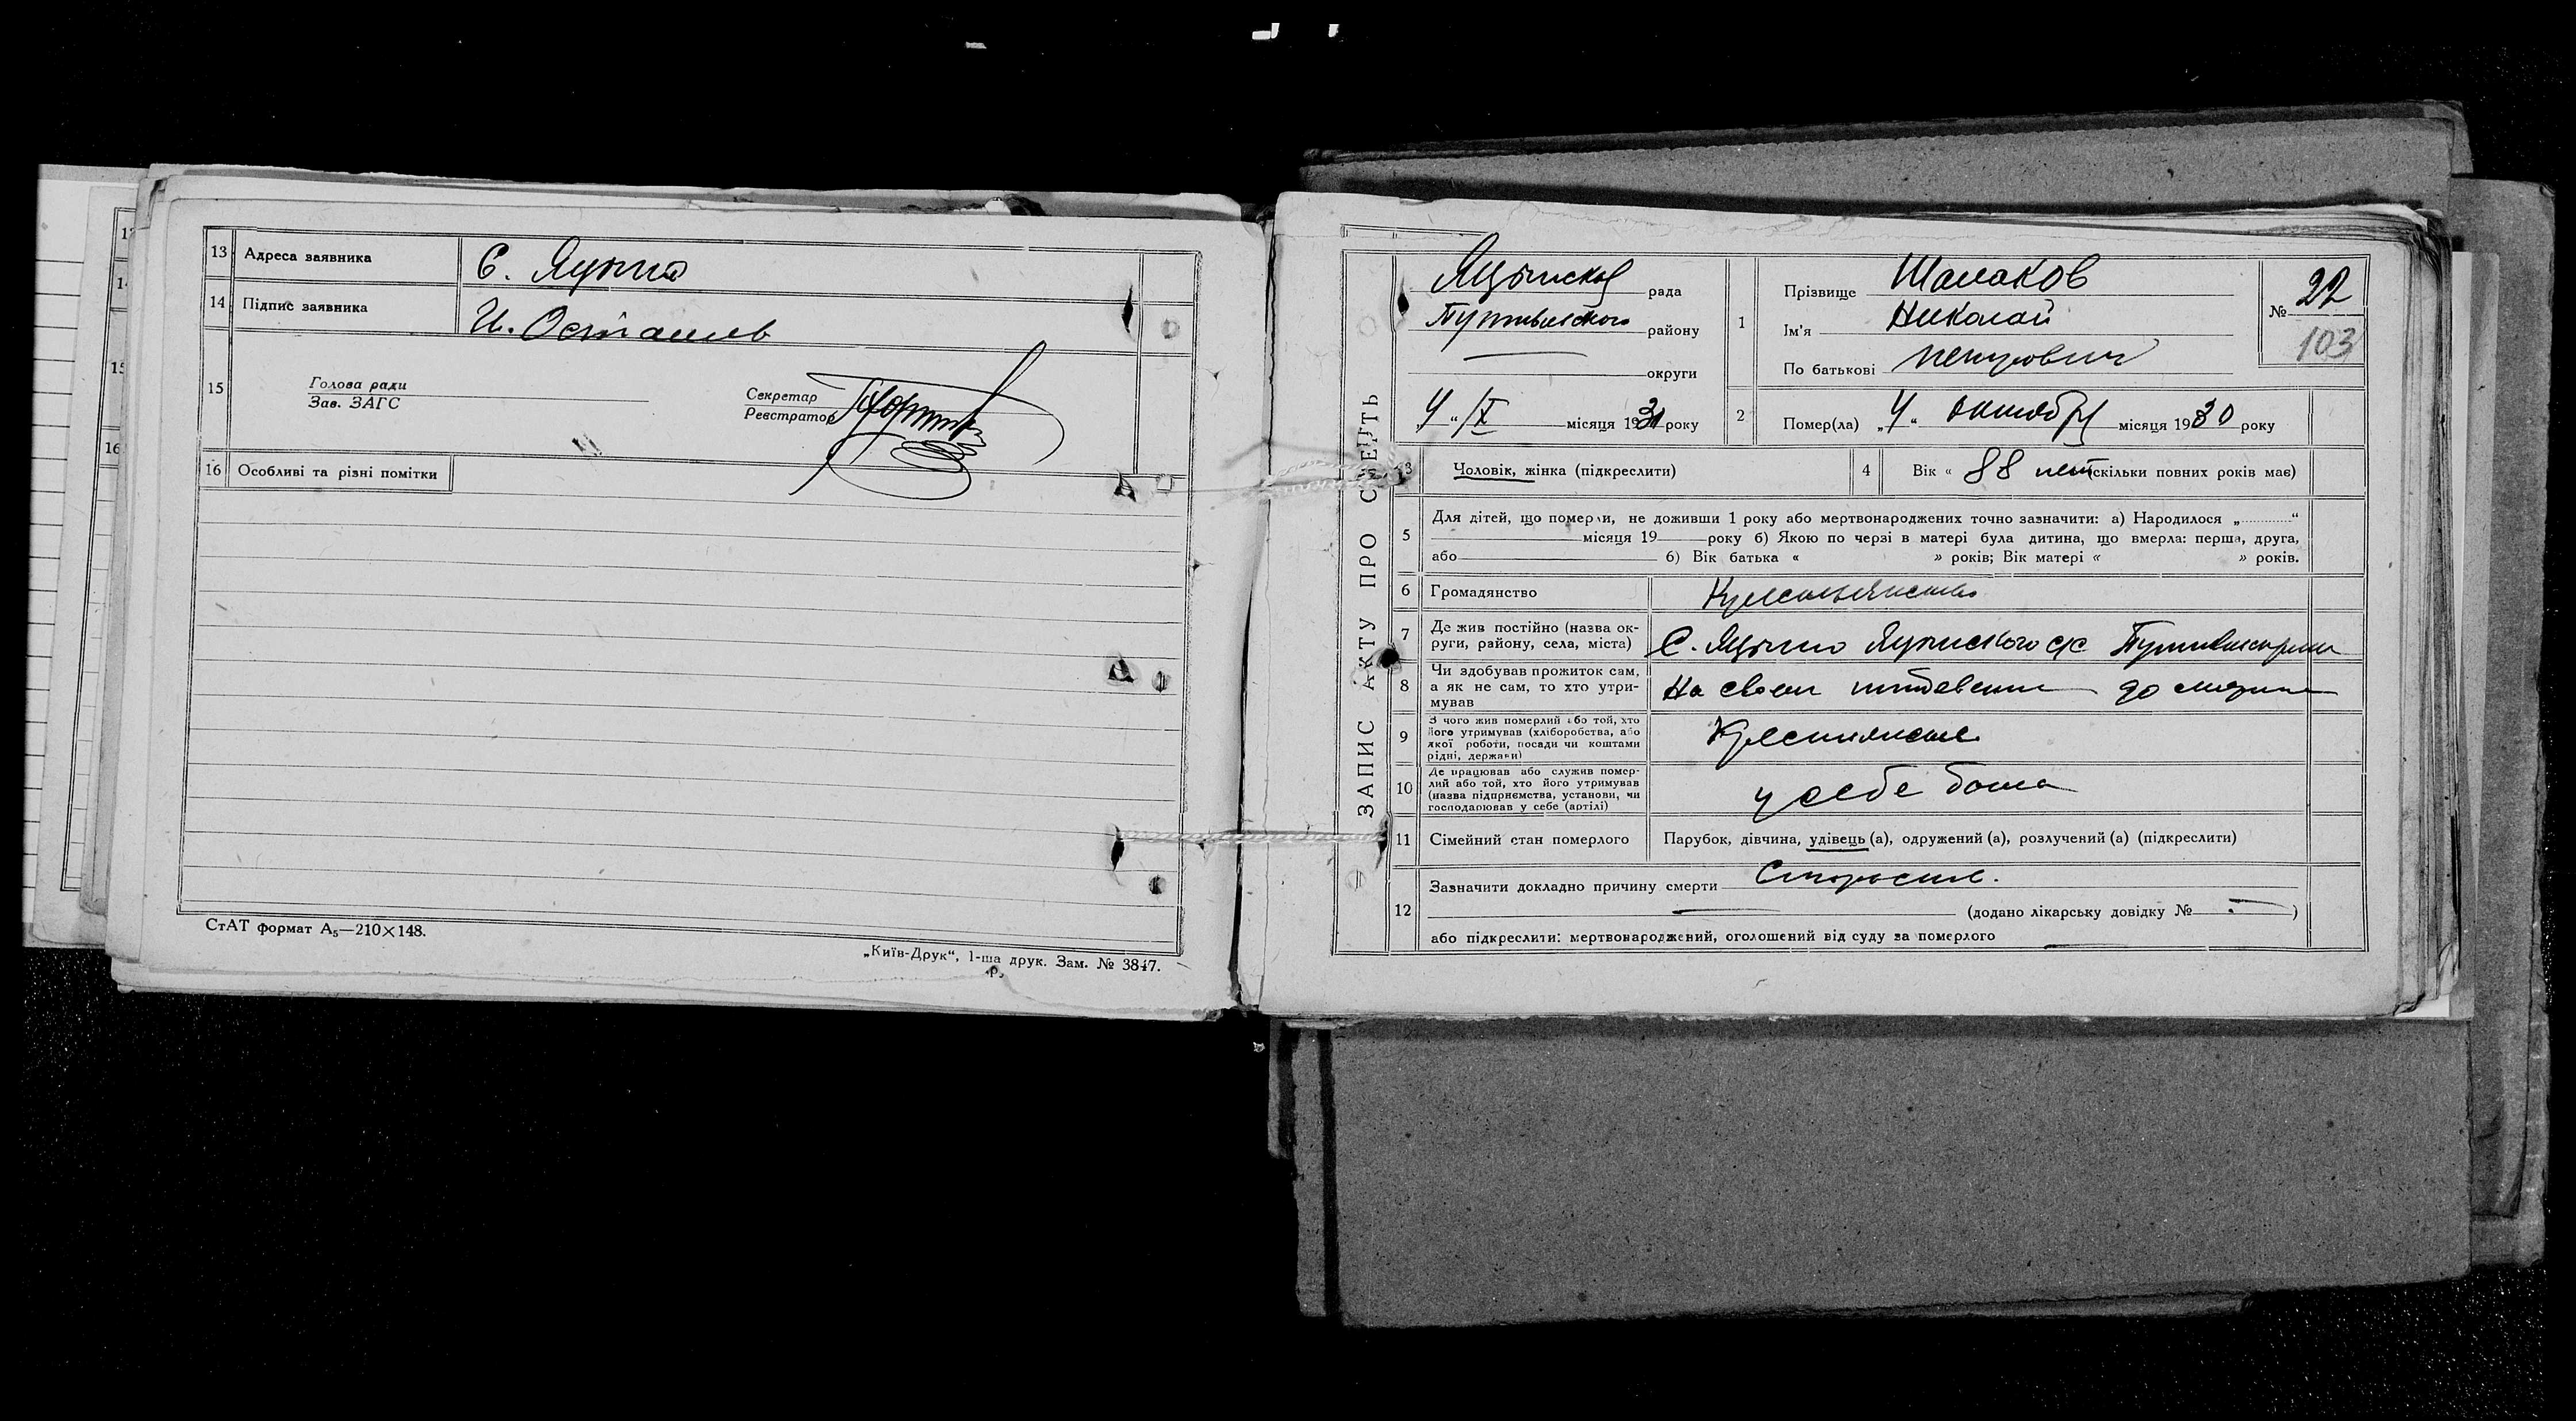 13 Адреса заявника С. Яцыно
14 Підпис заявника И. Осташов
15 Голова ради
Зав. ЗАГС
Секретар
Реєстратор
16 Особливі та різні помітки
СтАТ формат А₅—210×148.
„Київ-Друк“, 1-ша друк. Зам. № 3847.
ЗАПИС АКТУ ПРО СМЕРТЬ
рада
Путивльского району
округи
4 “ /X місяця 1930 року
1 Прізвище Шалаков
Ім'я Николай
По батькові
№ 22
103
2 Помер(ла) „4“ октября місяця 1930 року
3 Чоловік, жінка (підкреслити)
4 Вік « 88 лет скільки повних років має)
5 Для дітей, що померли, не доживши 1 року або мертвонароджених точно зазначити: а) Народилося „ “
місяця 19 року б) Якою по черзі в матері була дитина, що вмерла: перша, друга,
або б) Вік батька « » років; Вік матері « » років.
6 Громадянство
7 Де жив постійно (назва ок-
руги, району, села, міста) С. Яцыно Яцынского с/с
8 Чи здобував прожиток сам,
а як не сам, то хто утри-
мував На своем до смерти
9 З чого жив померлий або той, хто
його утримував (хліборобства, або
якої роботи, посади чи коштами
рідні, держави)
10 Де працював або служив помер-
лий або той, хто його утримував
(назва підприємства, установи, чи
господарював у себе (артілі) у себе дома
11 Сімейний стан померлого Парубок, дівчина, удівець (а), одружений (а), розлучений (а) (підкреслити)
12 Зазначити докладно причину смерти Старость.
(додано лікарську довідку № )
або підкреслити: мертвонароджений, оголошений від суду за померлого